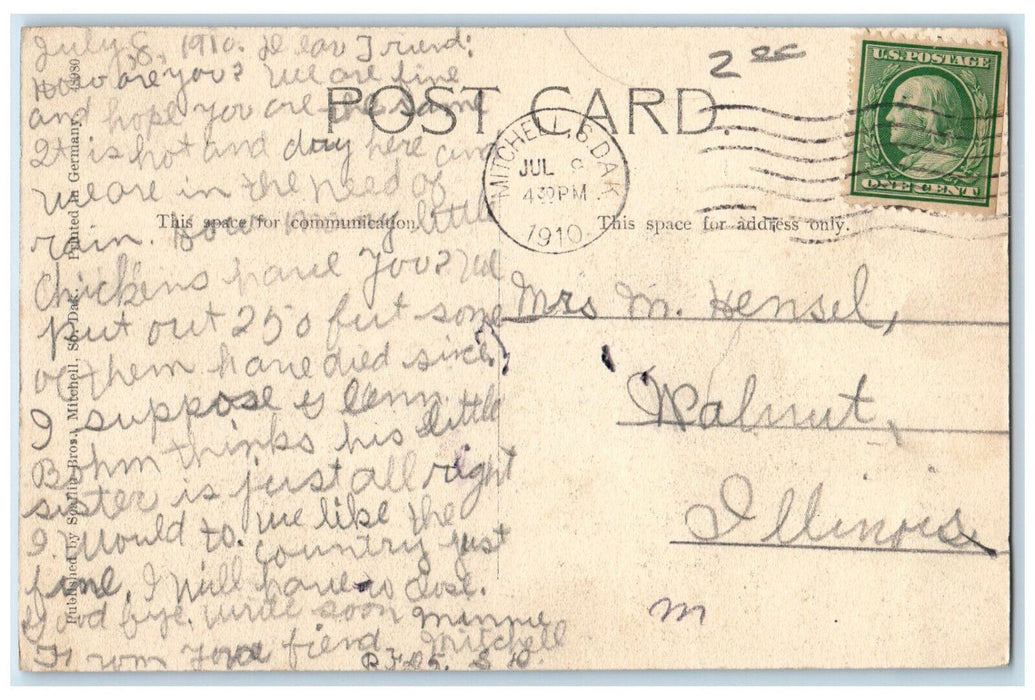 July 8, 1910. Dear Friend:
How are you? We are fine
and hope you are the same
It is hot and dry here and
we are in the need of
rain. How many little
chickens have you? We
put out 250 but some
of them have died since.
I suppose Glenn
Bohm thinks his little
sister is just all right
I would to. we like the
country just
fine. I will have to close.
Good bye. write soon Minnie
From your friend, Mitchell
R.F.D. 5. S. D.
POST CARD.
This space for communication.
This space for address only.
MITCHELL, S. DAK.
JUL 8
430 PM
1910
U.S. POSTAGE
ONE CENT
Mrs M. Hensel,
Walnut,
Illinois
m
Published by Bros., Mitchell, So. Dak. Printed in Germany.